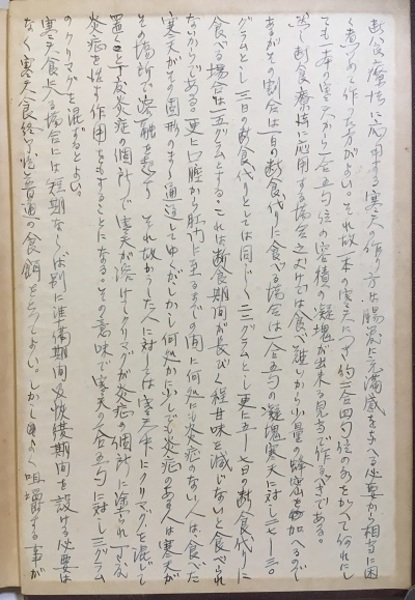 断食療法に応用する寒天の作り方は腸管に充満感を与へる必要から相当に固
く煮つめて作った方がよい。それ故一本の寒天につき約二合四勺位の水を加へて何れにし
ても一本の寒天から一合五勺位の容積の凝塊が出来る見当で作るべきである。
断食療法に応用する場合之だけでは食べ難いから少量の蜂蜜を加へるので
あるがその割合は一日の断食代りに食べる場合は一合五勺の凝塊寒天に対し二七〜三〇
グラムとし二日の断食代りとしては同じく二三グラムとし更に五〜七日の断食代りに
食べる場合は一五グラムとする。これは断食期間が長びく程甘味を減じないと食べられ
ないからである。更に口腔から肛門に至るまでの間に何処にも炎症のない人は食べた
寒天がその固形のまゝ通過してゆくが、しかし何処かに少しでも炎症のある人は寒天が
その場所で溶融を起す。それ故かうした人に対しては寒天中にクリマグを混じて
置くと丁度炎症の個所で寒天が溶けしクリマグが炎症の個所に塗られ丁度
炎症を治す作用をもすることになる。その意味で寒天の一合五勺に対し三グラム
のクリマグを混ずるとよい。
寒天食による場合には短期ならば別に準備期間及恢復期間を設ける必要は
なく寒天食終了後普通の食餌をとってよい。しかしよく咀嚼する事が